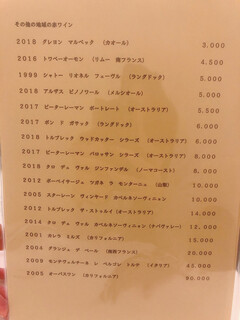 その他の地域の赤ワイン
2018 グレヨン マルベック (カオール) 3,000
2016 トワベーオーモン (リムー 南フランス) 4,500
1998 シャトー リオネル フェーヴル (ラングドック) 5,000
2018 アルザス ピノノワール (メルシオール) 5,000
2017 ピーターレーマン ポートレート (オーストラリア) 5,500
2017 ボン ド ガサック (ラングドック) 6,000
2018 トルブレック ウッドカッター シラーズ (オーストラリア) 6,000
2017 ピーターレーマン バロッサン シラーズ (オーストラリア) 6,000
2018 クロ デュ ヴァル ジンファンデル (ノーマコースト) 8,000
2012 ボーペイサージュ ツガネ ラ モンターニュ (山梨) 10,000
2005 スターレーン ヴィンヤード カベルネソーヴィニョン 10,000
2012 トルブレック ザ・ストゥルイ (オーストラリア) 14,000
2014 クロ デュ ヴァル カベルネソーヴィニヨン (ナパヴァレー) 12,000
2001 カレラ ミルズ (カリフォルニア) 15,000
2004 グランジュ デ ペール (南仏フランス) 20,000
2009 モンテヴェルティーネ レ ペルゴレ トルテ (イタリア) 45,000
2005 オーパスワン (カリフォルニア) 60,000